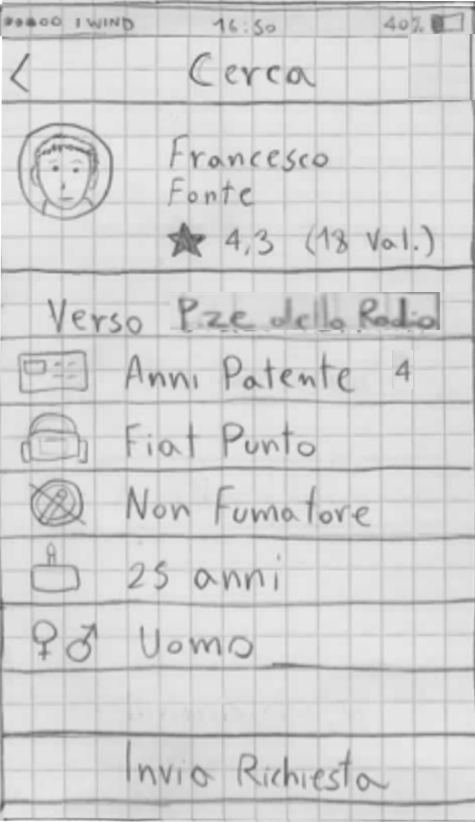 WIND 16:50 40%
Cerca
Francesco
Fonte
4,3 (18 Val.)
Verso P.ze della Radio
Anni Patente 4
Fiat Punto
Non Fumatore
25 anni
Uomo
Invia Richiesta